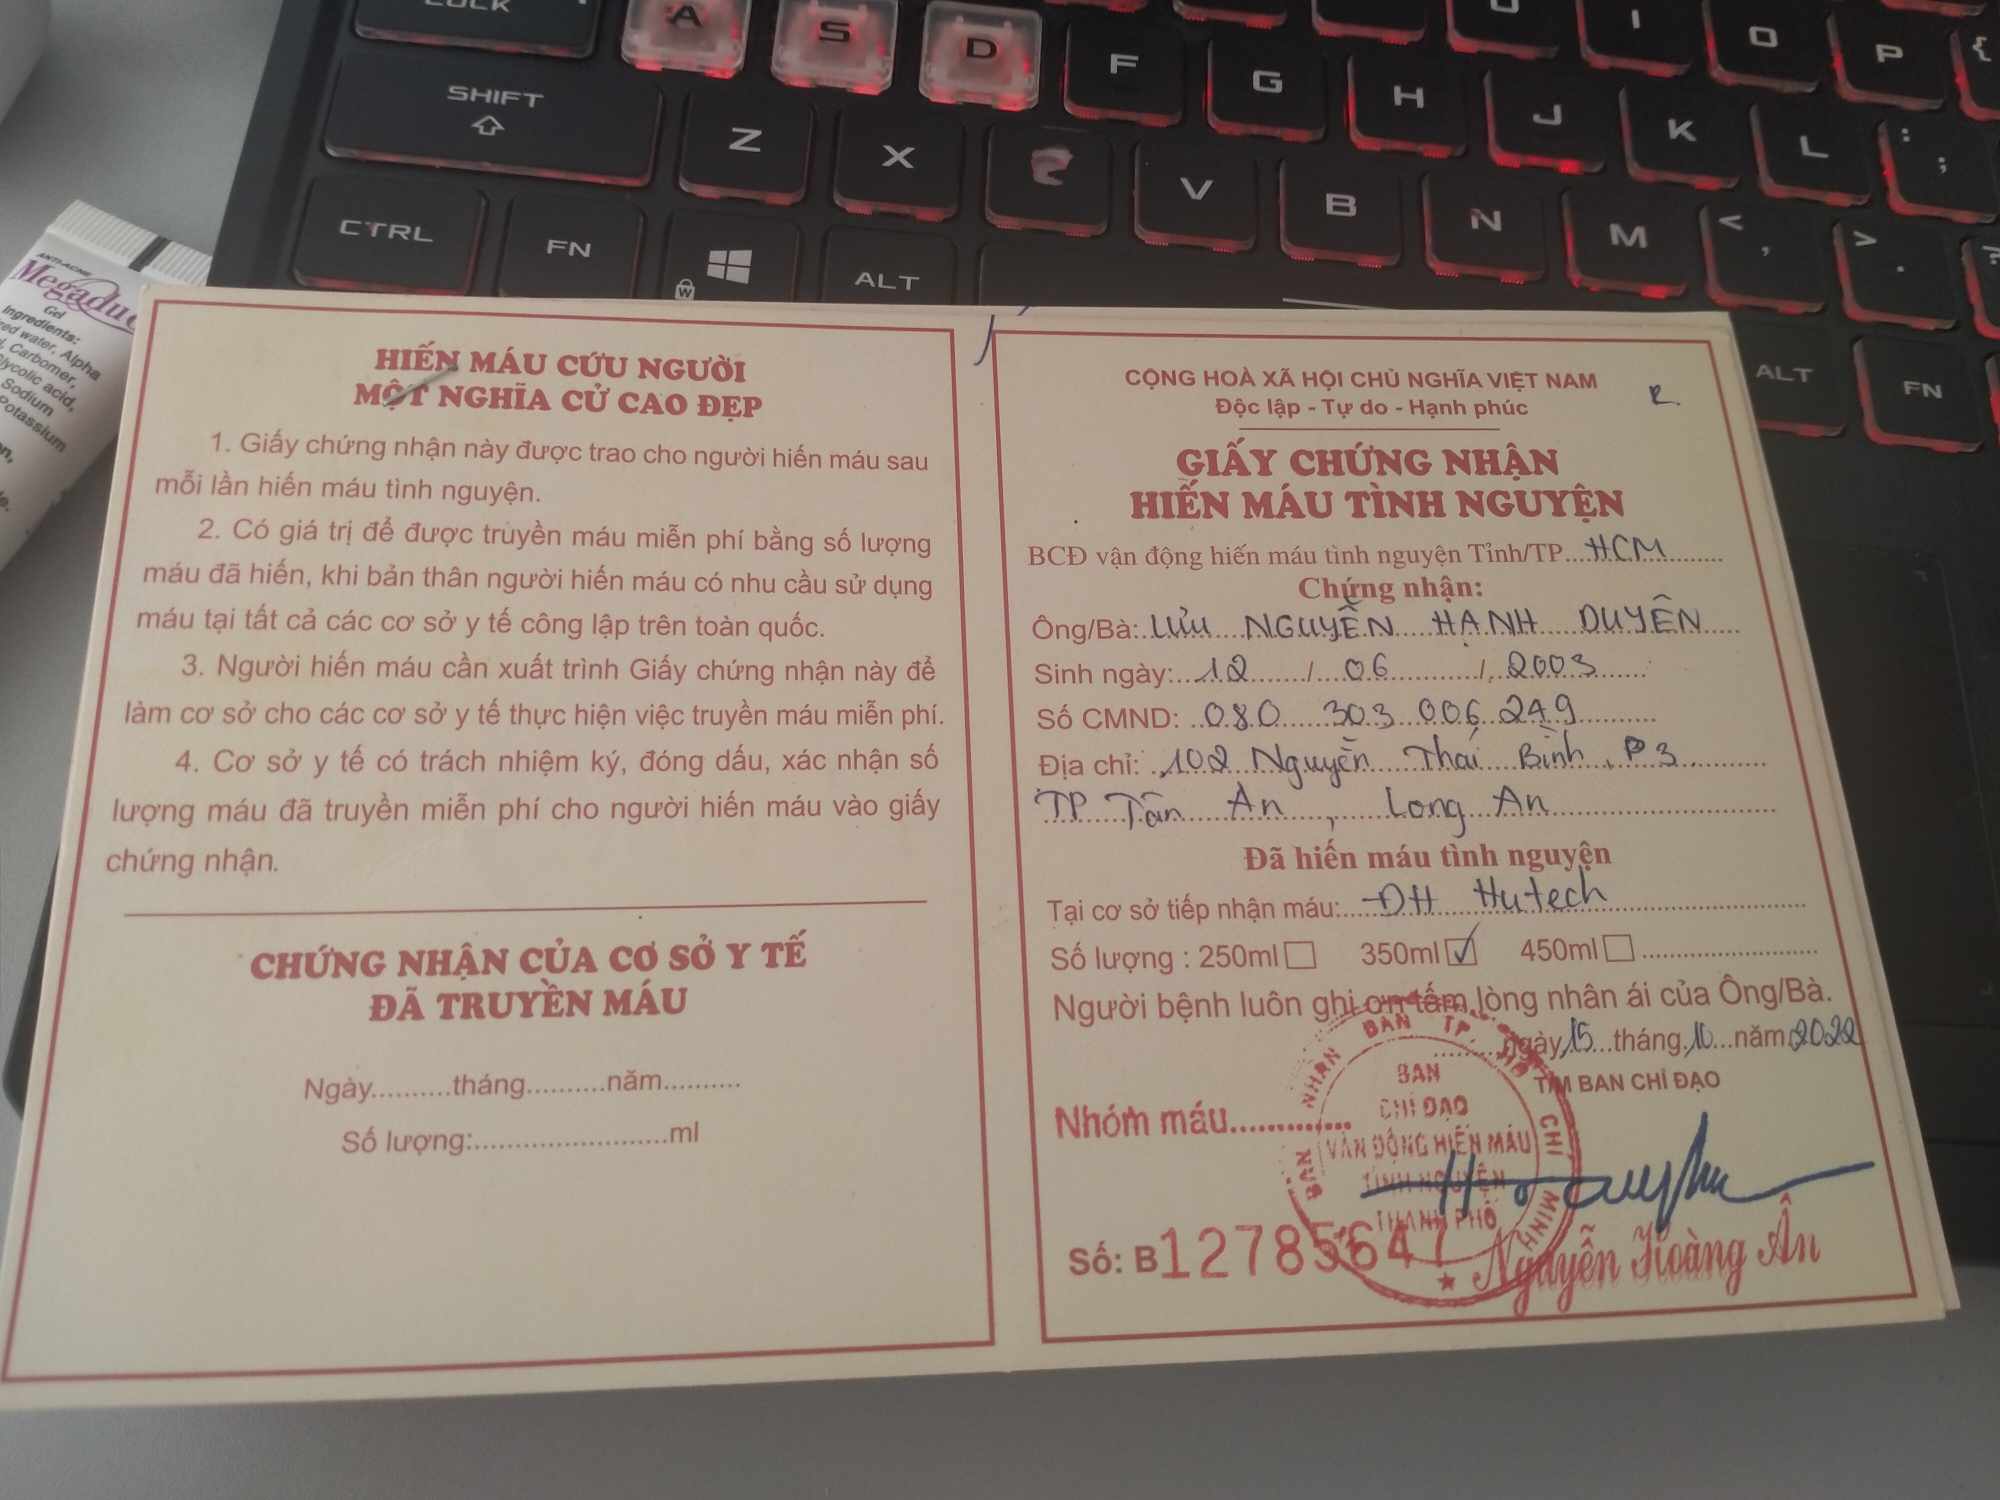 LOCK
A
S
D
F
G
H
J
K
L
:
;
I
O
P
{
SHIFT
Z
X
V
B
N
M
<
,
>
.
?
CTRL
FN
W
ALT
ALT
FN
ANTI-ACNE
Gel
Ingredients:
water, Alpha
Carbomer,
Glycolic acid,
Sodium
Potassium
HIẾN MÁU CỨU NGƯỜI
MỘT NGHĨA CỬ CAO ĐẸP
1. Giấy chứng nhận này được trao cho người hiến máu sau
mỗi lần hiến máu tình nguyện.
2. Có giá trị để được truyền máu miễn phí bằng số lượng
máu đã hiến, khi bản thân người hiến máu có nhu cầu sử dụng
máu tại tất cả các cơ sở y tế công lập trên toàn quốc.
3. Người hiến máu cần xuất trình Giấy chứng nhận này để
làm cơ sở cho các cơ sở y tế thực hiện việc truyền máu miễn phí.
4. Cơ sở y tế có trách nhiệm ký, đóng dấu, xác nhận số
lượng máu đã truyền miễn phí cho người hiến máu vào giấy
chứng nhận.
CHỨNG NHẬN CỦA CƠ SỞ Y TẾ
ĐÃ TRUYỀN MÁU
Ngày..........tháng..........năm..........
Số lượng:.........................ml
CỘNG HOÀ XÃ HỘI CHỦ NGHĨA VIỆT NAM
Độc lập - Tự do - Hạnh phúc
GIẤY CHỨNG NHẬN
HIẾN MÁU TÌNH NGUYỆN
BCĐ vận động hiến máu tình nguyện Tỉnh/TP...HCM
Chứng nhận:
Ông/Bà: LƯU NGUYỄN HẠNH DUYÊN
Sinh ngày: 12 / 06 / 2003
Số CMND: 080 303 006 249
Địa chỉ: 102 Nguyễn Thái Bình, P3
TP Tân An, Long An
Đã hiến máu tình nguyện
Tại cơ sở tiếp nhận máu: ĐH Hutech
Số lượng : 250ml 350ml ✓ 450ml
Người bệnh luôn ghi ơn tấm lòng nhân ái của Ông/Bà.
ngày 15 tháng 10 năm 2022
TM BAN CHỈ ĐẠO
Nhóm máu.............
BAN NHÂN BAN TP. HỒ CHÍ MINH
BAN
CHỈ ĐẠO
VẬN ĐỘNG HIẾN MÁU
TÌNH NGUYỆN
THÀNH PHỐ
Số: B12785647
Nguyễn Hoàng Ân